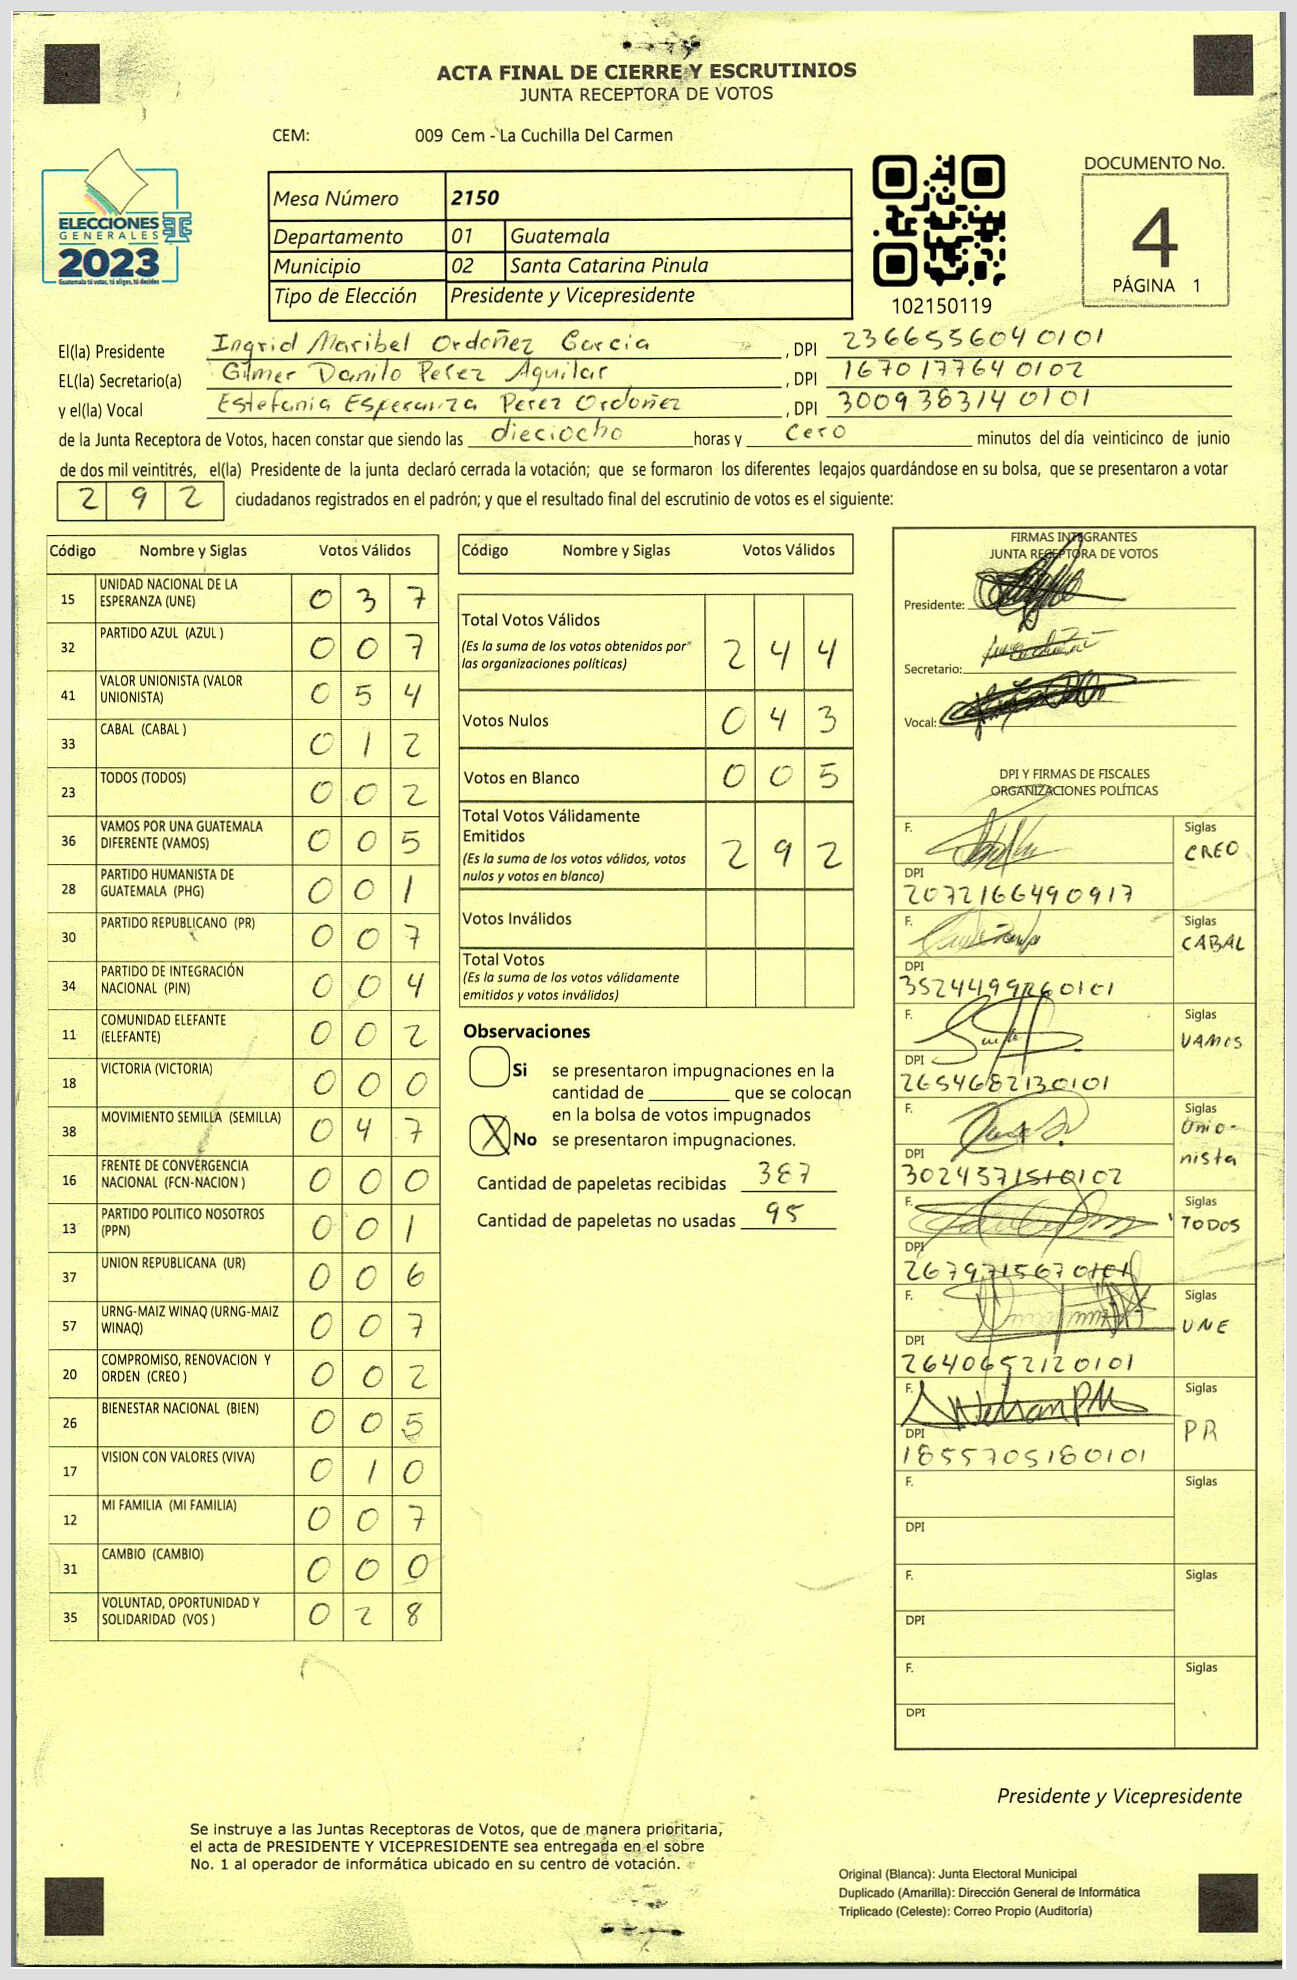 ACTA FINAL DE CIERRE Y ESCRUTINIOS
JUNTA RECEPTORA DE VOTOS
CEM: 009 Cem - La Cuchilla Del Carmen
ELECCIONES
GENERALES
2023
Guatemala tú votas, tú eliges, tú decides
Mesa Número 2150
Departamento 01 Guatemala
Municipio 02 Santa Catarina Pinula
Tipo de Elección Presidente y Vicepresidente
102150119
DOCUMENTO No.
4
PÁGINA 1
El(la) Presidente Ingrid Maribel Ordoñez Garcia , DPI 2366556040101
EL(la) Secretario(a) Gilmer Danilo Perez Aguilar , DPI 1670177640102
y el(la) Vocal Estefania Esperanza Perez Ordoñez , DPI 3009383140101
de la Junta Receptora de Votos, hacen constar que siendo las dieciocho horas y cero minutos del día veinticinco de junio
de dos mil veintitrés, el(la) Presidente de la junta declaró cerrada la votación; que se formaron los diferentes legajos guardándose en su bolsa, que se presentaron a votar
292 ciudadanos registrados en el padrón; y que el resultado final del escrutinio de votos es el siguiente:
Código Nombre y Siglas Votos Válidos
15 UNIDAD NACIONAL DE LA ESPERANZA (UNE) 037
32 PARTIDO AZUL (AZUL ) 007
41 VALOR UNIONISTA (VALOR UNIONISTA) 054
33 CABAL (CABAL ) 012
23 TODOS (TODOS) 002
36 VAMOS POR UNA GUATEMALA DIFERENTE (VAMOS) 005
28 PARTIDO HUMANISTA DE GUATEMALA (PHG) 001
30 PARTIDO REPUBLICANO (PR) 007
34 PARTIDO DE INTEGRACIÓN NACIONAL (PIN) 004
11 COMUNIDAD ELEFANTE (ELEFANTE) 002
18 VICTORIA (VICTORIA) 000
38 MOVIMIENTO SEMILLA (SEMILLA) 047
16 FRENTE DE CONVERGENCIA NACIONAL (FCN-NACION ) 000
13 PARTIDO POLITICO NOSOTROS (PPN) 001
37 UNION REPUBLICANA (UR) 006
57 URNG-MAIZ WINAQ (URNG-MAIZ WINAQ) 007
20 COMPROMISO, RENOVACION Y ORDEN (CREO ) 002
26 BIENESTAR NACIONAL (BIEN) 005
17 VISION CON VALORES (VIVA) 010
12 MI FAMILIA (MI FAMILIA) 007
31 CAMBIO (CAMBIO) 000
35 VOLUNTAD, OPORTUNIDAD Y SOLIDARIDAD (VOS ) 028
Código Nombre y Siglas Votos Válidos
Total Votos Válidos 244
(Es la suma de los votos obtenidos por las organizaciones políticas)
Votos Nulos 043
Votos en Blanco 005
Total Votos Válidamente Emitidos 292
(Es la suma de los votos válidos, votos nulos y votos en blanco)
Votos Inválidos
Total Votos
(Es la suma de los votos válidamente emitidos y votos inválidos)
Observaciones
Si se presentaron impugnaciones en la
cantidad de ________ que se colocan
en la bolsa de votos impugnados
X No se presentaron impugnaciones.
Cantidad de papeletas recibidas 387
Cantidad de papeletas no usadas 95
FIRMAS INTEGRANTES
JUNTA RECEPTORA DE VOTOS
Presidente:
Secretario:
Vocal:
DPI Y FIRMAS DE FISCALES
ORGANIZACIONES POLÍTICAS
F. Siglas CREO
DPI 2072166490917
F. Siglas CABAL
DPI
F. Siglas VAMOS
DPI 2654682130101
F. Siglas Unio-
nista
DPI
F. Siglas TODOS
DPI 2679715670101
F. Siglas UNE
DPI 2640652120101
F. Siglas PR
DPI 1855705180101
F. Siglas
DPI
F. Siglas
DPI
F. Siglas
DPI
Presidente y Vicepresidente
Se instruye a las Juntas Receptoras de Votos, que de manera prioritaria,
el acta de PRESIDENTE Y VICEPRESIDENTE sea entregada en el sobre
No. 1 al operador de informática ubicado en su centro de votación.
Original (Blanca): Junta Electoral Municipal
Duplicado (Amarilla): Dirección General de Informática
Triplicado (Celeste): Correo Propio (Auditoría)